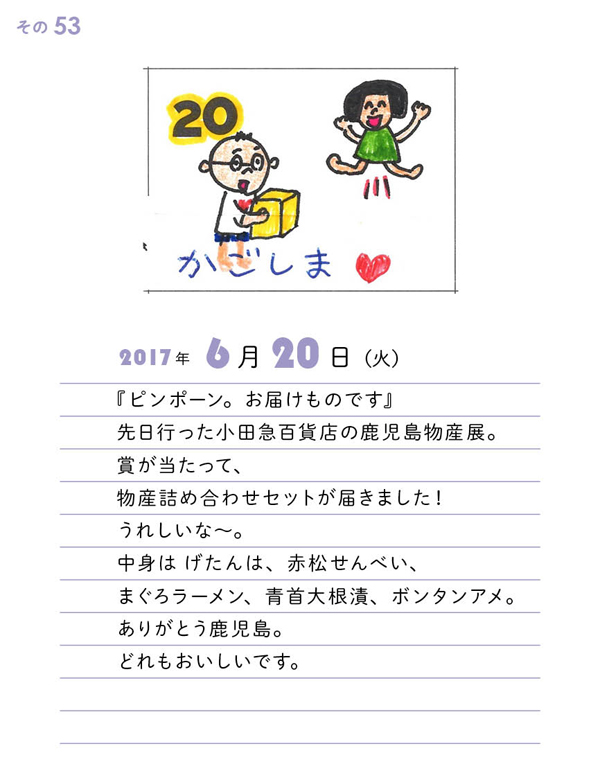 その53
20
かごしま
2017年 6月20日（火）
『ピンポーン。お届けものです』
先日行った小田急百貨店の鹿児島物産展。
賞が当たって、
物産詰め合わせセットが届きました！
うれしいな〜。
中身は げたんは、赤松せんべい、
まぐろラーメン、青首大根漬、ボンタンアメ。
ありがとう鹿児島。
どれもおいしいです。